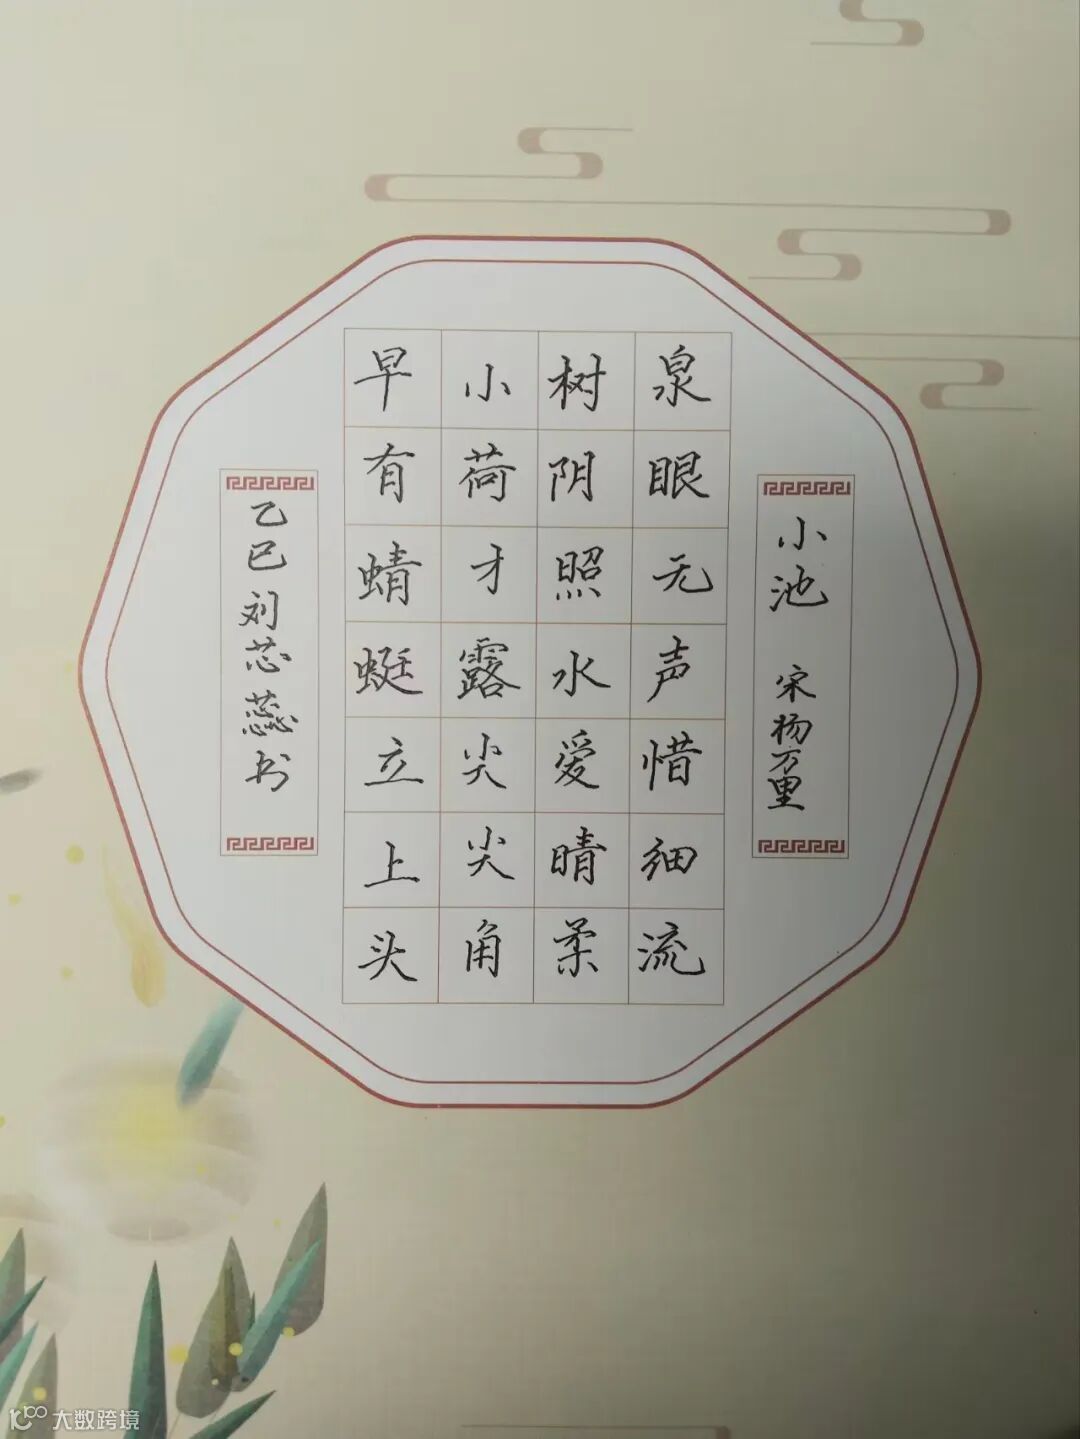 小池 宋杨万里
泉眼无声惜细流
树阴照水爱晴柔
小荷才露尖尖角
早有蜻蜓立上头
乙巳刘芯蕊书
大数跨境